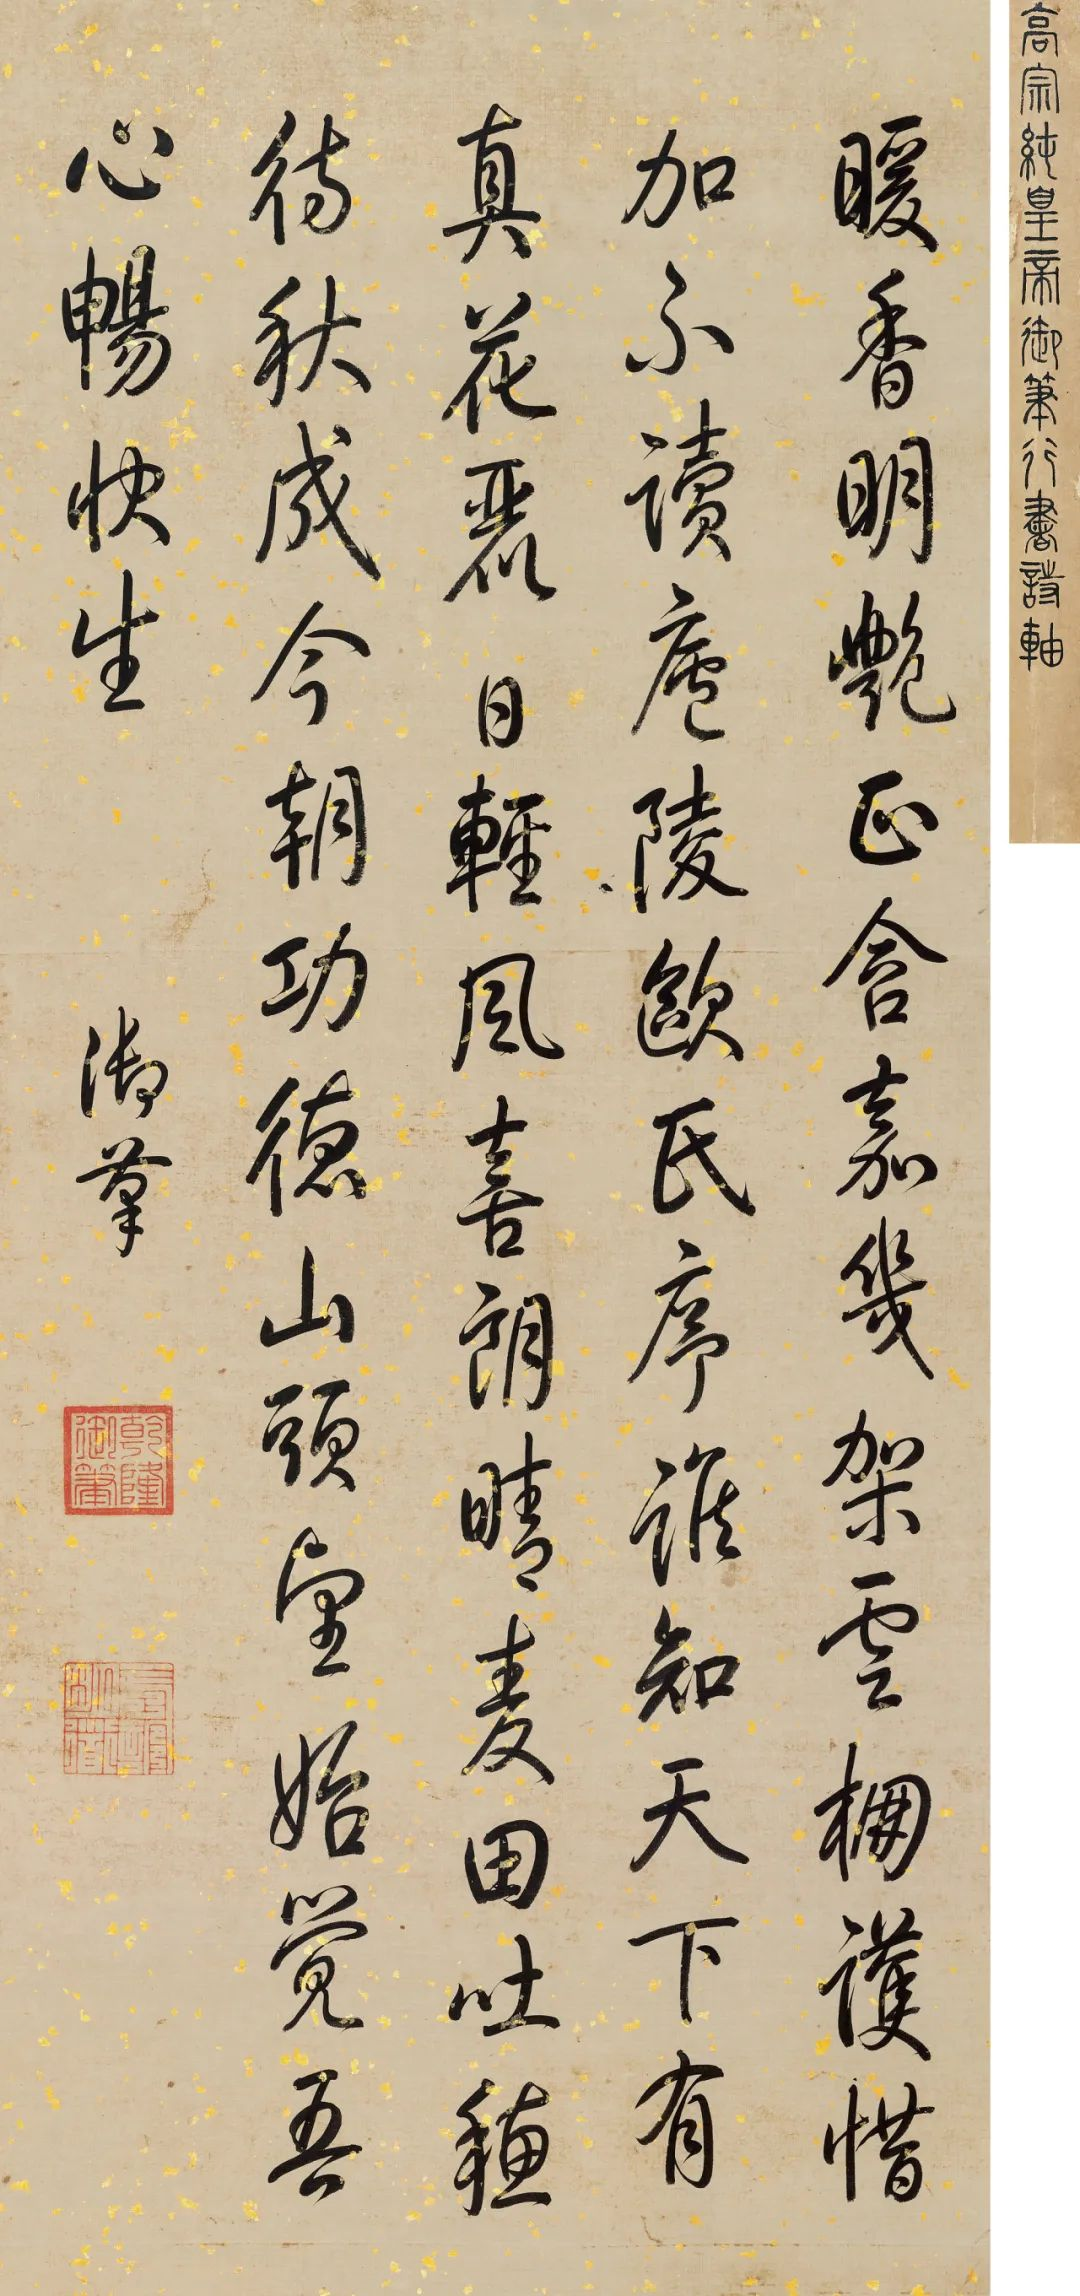 高宗純皇帝御筆行書詩軸
暖香明艷正含嘉幾架雲棚護惜
加不讀廬陵歐氏序誰知天下有
真花麗日輕風喜朗晴麦田吐穗
待秋成今朝功德山頭望始覺吾
心暢快生
御筆
乾隆御筆